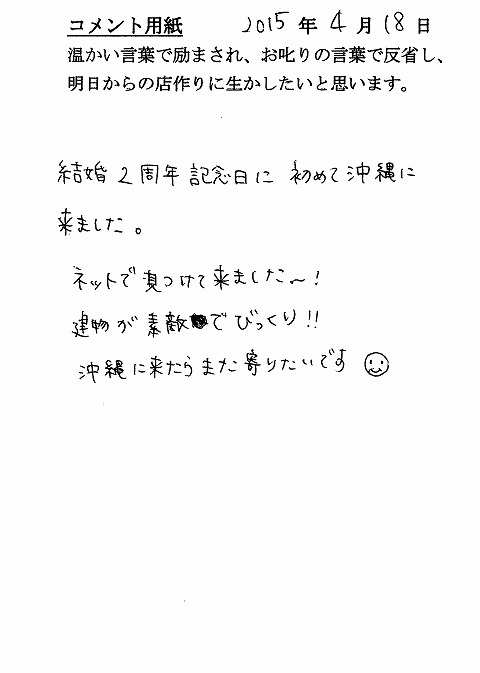 コメント用紙 2015年4月18日
温かい言葉で励まされ、お叱りの言葉で反省し、
明日からの店作りに生かしたいと思います。
結婚2周年記念日に 初めて沖縄に
来ました。
ネットで見つけて来ました〜!
建物が素敵でびっくり!!
沖縄に来たらまた寄りたいです